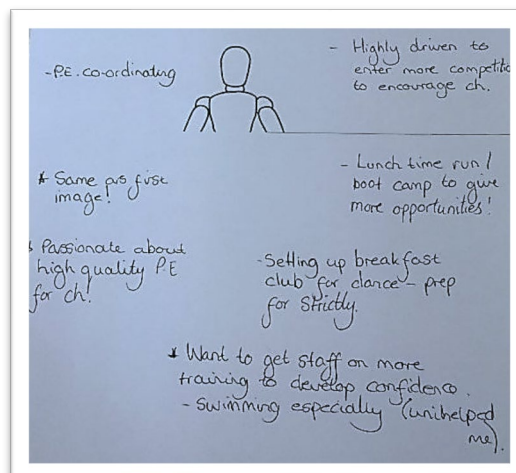 -P.E. co-ordinating
- Highly driven to
enter more competitio
to encourage ch.
* Same as first
image!
- Lunch time run /
boot camp to give
more opportunities!
* Passionate about
high quality P.E
for ch!
- Setting up breakfast
club for dance - prep
for Strictly.
* Want to get staff on more
training to develop confidence.
- Swimming especially (uni helped
me).